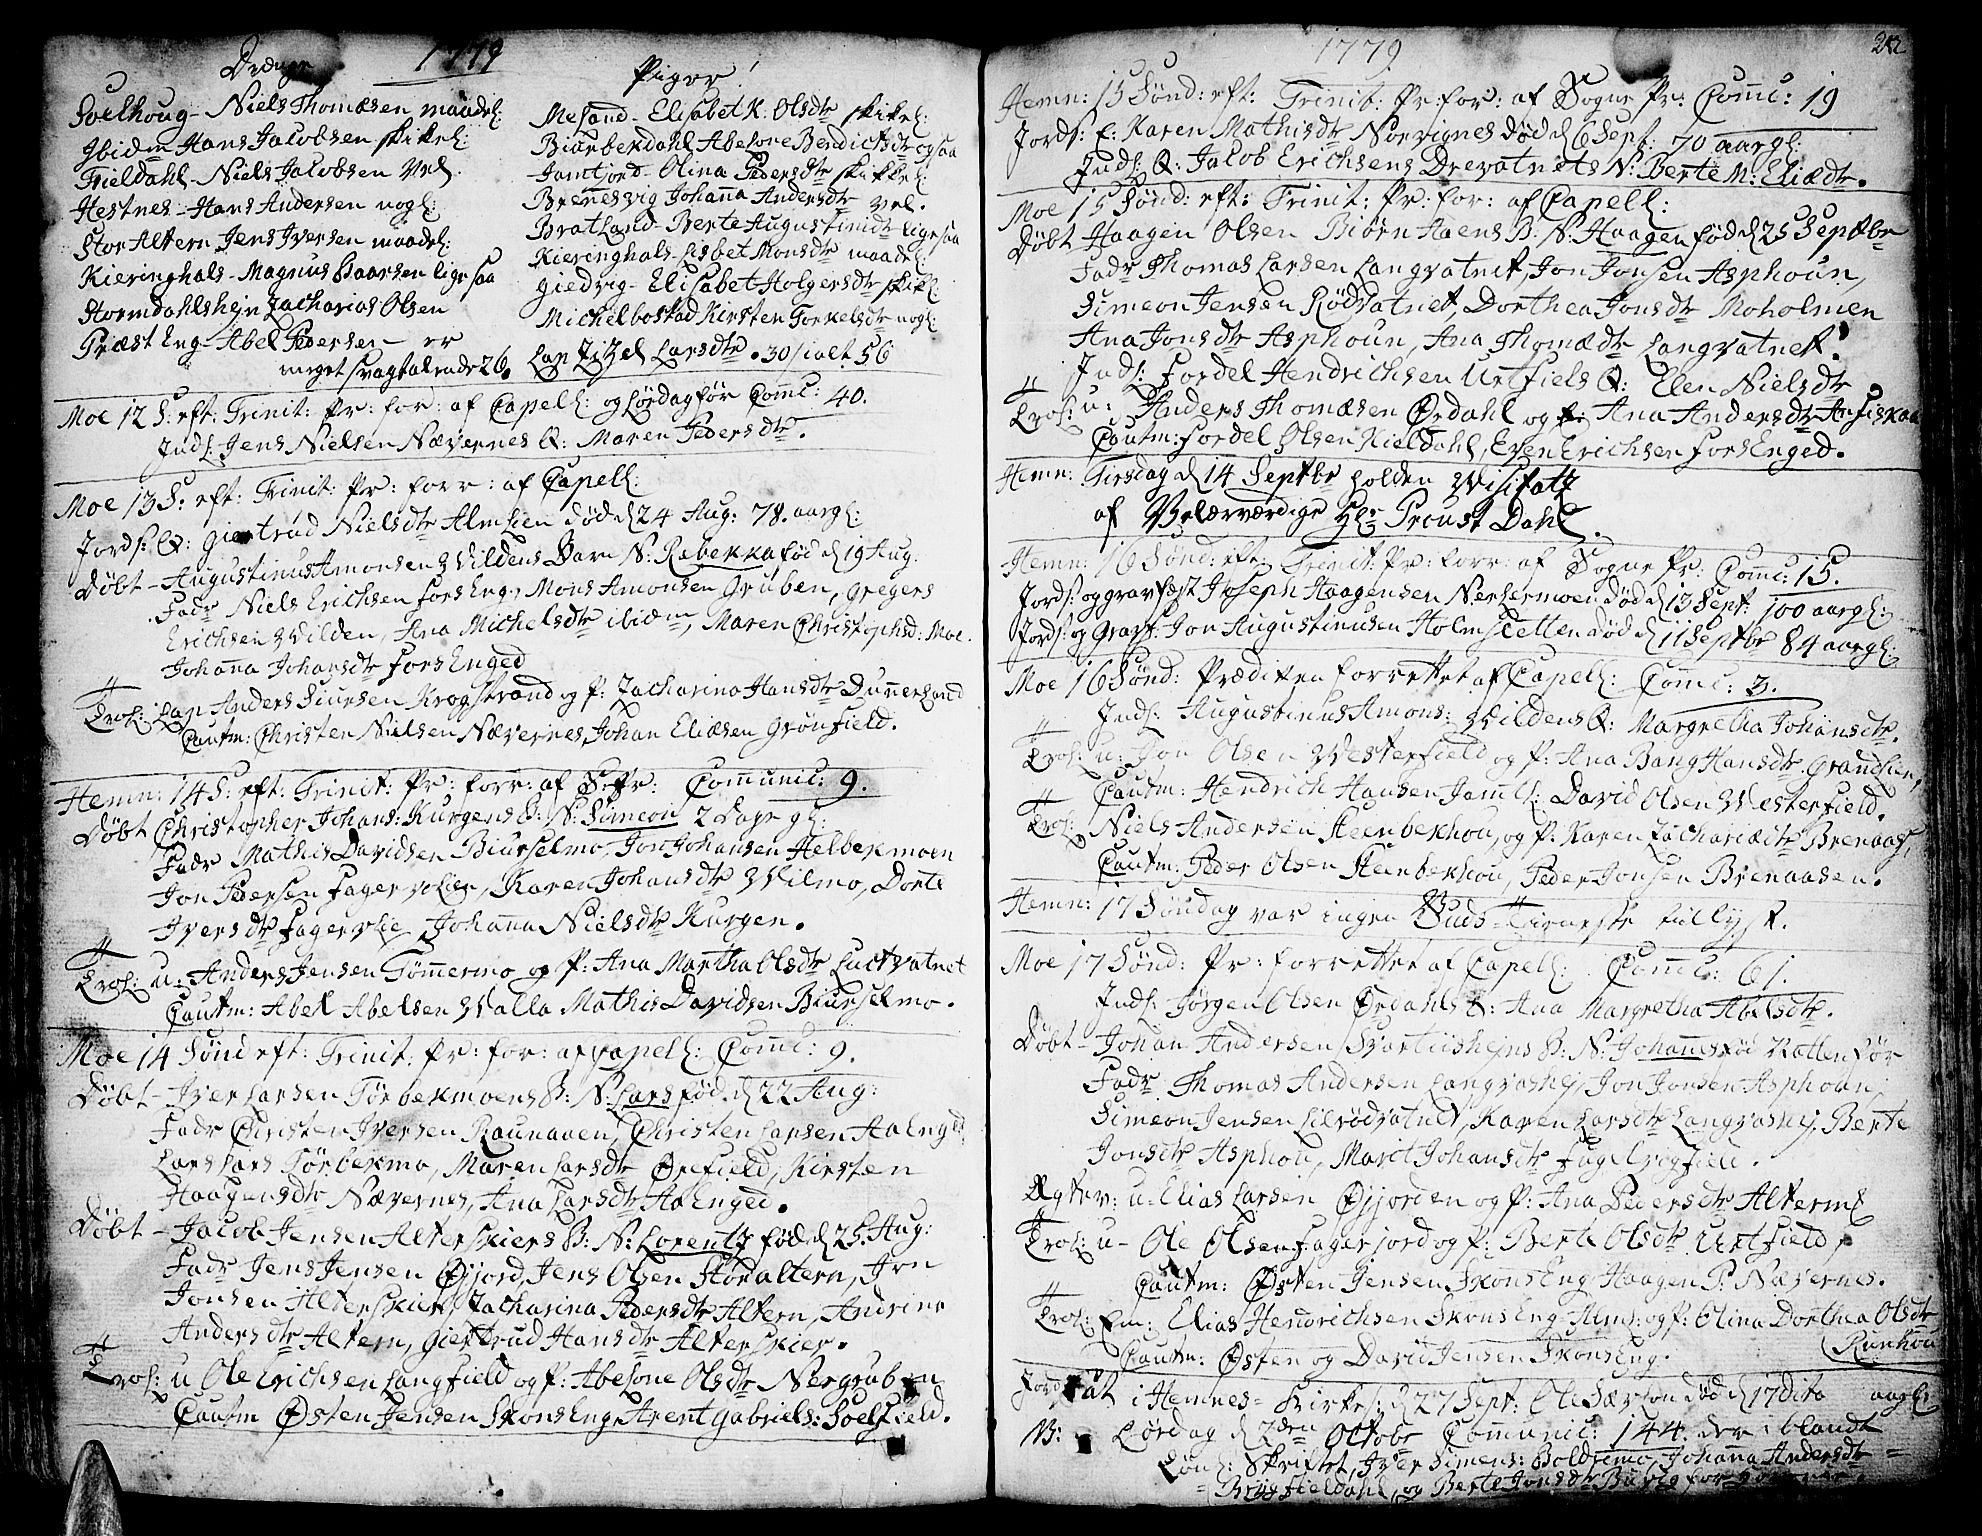 Drænge
1779
Piger
Soelhoug - Niels Thomæsen maadel:
Ibidm Hans Jacobsen skikel:
Trældahl - Niels Jacobsen vel.
Hestnes - Hans Andersen nogl:
Stor Altern Jens Iversen maadel:
Kieringhals - Magnus Baarsen lige saa
Stormdahlshejn Zacharias Olsen
Præst Eng - Abel Pedersen - er
meget svagtalende 26.
Mesand - Elisabet K. Olsdtr skikel:
Biurbekdahl Abelone Bendictsdtr ogsaa
Jamtjord - Olina Pedersdtr skikkel:
Brennesvig Johanna Andersdtr vel.
Bratland - Berte Augustinidtr lige saa
Kieringhals - Lisbet Monsdtr maadel:
Giedvig - Elisabet Holgersdtr skikl:
Michelbostad Kirsten Torkelsdtr nogl:
Lap Zizel Larsdtr. 30 / ialt 56
Moe 12 S: eft: Trinit: Pr: for: af Capell: og Lørdag før Comc: 40.
Inds: Jens Nielsen Nævernes Q: Maren Pedersdtr.
Moe 13 S: eft: Trinit: Pr: forr: af Capell:
Jords: Q: Giertrud Nielsdtr Almlien død d 24 Aug: 78. aargl:
Døbt - Augustinus Amonsen Wildens Barn N: Rebekka fød d 19 Aug:
Fadr Niels Erichsen Fors Eng, Mons Amonsen Gruben, Gregers
Erichsen Wilden, Ana Michelsdtr ibidm, Maren Christophsd: Moe.
Johanna Johansdtr Fors Enged
Trol: Lap Anders Siursen Krogstrand og P: Zacharina Hansdtr Dunnerland
Cautm: Christen Nielsen Nævernes, Johan Eliæsen Grønfield.
Hemn: 14 S: eft: Trinit: Pr: forr: af S: Pr: Communic: 9.
Døbt Christopher Johans: Kurgens B: N: Simeon 2 Dage gl:
Fadr Mathis Davidsen Biurselmo, Jon Johansen Helbekmoen
Jon Pedersen Fagervolien, Karen Johansdtr Wilmo, Dorte
Iversdtr Fagervlie Johanna Nielsdtr Kurgen.
Trol: u: Anders Jensen Tømmermo og P: Ana Martha Olsdtr Luctvatnet
Cautm: Abel Abelsen Walla Mathis Davidsen Biurselmo.
Moe 14 Sønd eft: Trinit: Pr: for: af Capell: Comc: 9.
Døbt - Iver Larsen Tørbekmoens B: N: Lars fød d 22 Aug:
Fadr Christen Iversen Raunaaen, Christen Larsen Aa Enged
Lars Lars Tørbekmo, Maren Larsdtr Ørefield, Kirsten
Haagensdtr Nævernes, Ana Larsdtr Aa Enged.
Døbt - Jacob Jensen Alterskiers B: N: Lorentz fød d 25. Aug:
Fadr Jens Jensen Øijord, Jens Olsen Stor altern, Jon
Jonsen Alterskier, Zacharina Pedersdtr Altern, Andrine
Andersdtr Altern, Giertrud Hansdtr Alterskier.
Trol: u Ole Erichsen Langfield og P: Abelone Olsdtr Nergruben
Cautm Østen Jensen Skons Eng, Arent Gabriels: Soelfield.
1779
212
Hemn: 15 Sønd: eft: Trinit: Pr: for: af Sogne Pr: Comc: 19
Jords: E: Karen Mathisdtr Norvignes død d 6 Sept: 70 aargl:
Inds: Q: Jacob Erichsens Drevatnets N: Berte M: Eliædtr.
Moe 15 Sønd: eft: Trinit: Pr: for: af Capell:
Døbt Haagen Olsen Biørn Haens B: N: Haagen fød d 25 Septbr
Fadr Thomas Larsen Langvatnet, Jon Jonsen Asphoun,
Simeon Jensen Rødvatnet, Dorthea Jonsdtr Moholmen
Ana Jonsdtr Asphoun, Ana Thomædtr Langvatnet.
Inds: Fordel Hendrichsen Urtfiels Q: Elen Nielsdtr
Trol: u: Anders Thomæsen Ørdahl og P: Ana Andersdtr
Cautm: Fordel Olsen Kieldahl, Even Erichsen Fors Enged.
Hemn: Tirsdag d 14 Septbr holden Visitatz
af Velærværdige Hr Proust Dahl.
Hemn: 16 Sønd: eft: Trinit: Pr: forr: af Sogne Pr: Comc: 15.
Jords: og gravfæst Joseph Haagensen Nerlermoen død d 13 Sept: 100 aargl:
Jords: og Gravf: Jon Augustinusen Holmsletten død d 11 Septbr 84 aargl:
Moe 16 Sønd: Prædiken forrettet af Capell: Comc: 3.
Inds: Augustinus Amons: Wildens Q: Margretha Johansdtr.
Trol: u: Jon Olsen Westerfield og P: Ana Bang Hansdtr Grandlien,
Cautm: Hendrich Hansen Jamtl: David Olsen Westerfield.
Trol: Niels Andersen Steenbekhou, og P: Karen Zachariædtr Brenaas,
Cautm: Peder Olsen Steenbekhou, Peder Jonsen Brenaasen.
Hemn: 17 Søndag var ingen Guds-Tieneste tillyst.
Moe 17 Sønd: Pr: forrettet af Capell: Comc: 61.
Inds: Jørgen Olsen Ørdahls Q: Ana Margretha Abelsdtr.
Døbt - Johan Andersen Svartiishejns B: N: Johannes fød
Fadr Thomas Andersen Langvashej, Jon Jonsen Asphoun,
Simeon Jensen Lilrødvatnet, Karen Larsdtr Langvashej, Berte
Jonsdtr Asphou, Marit Johansdtr Fuglevigfield.
Ægtev: u: Elias Larsen Øijorden og P: Ana Pedersdtr Alterm
Trol: u - Ole Olsen Fagerjord og P: Berte Olsdtr Urtfield,
Cautm: Østen Jensen Skons Eng Haagen P: Nævernes.
Trol: Em: Elias Hendrichsen Skons Eng Alm: og P: Olina Dorthea Olsdtr
Runhou
Cautm: Østen og David Jensen Skons Eng.
Jordfæt i Hemnes-Kirke: d 27 Sept: Ole død d 17 Dito aargl:
N: Lørdag d 2den Octobr Communic: 144. der iblandt
Løn: Skriftet Iver Simens: Boldermo, Johanna Andersdtr
Brygfieldahl, og Berte Jonsdtr